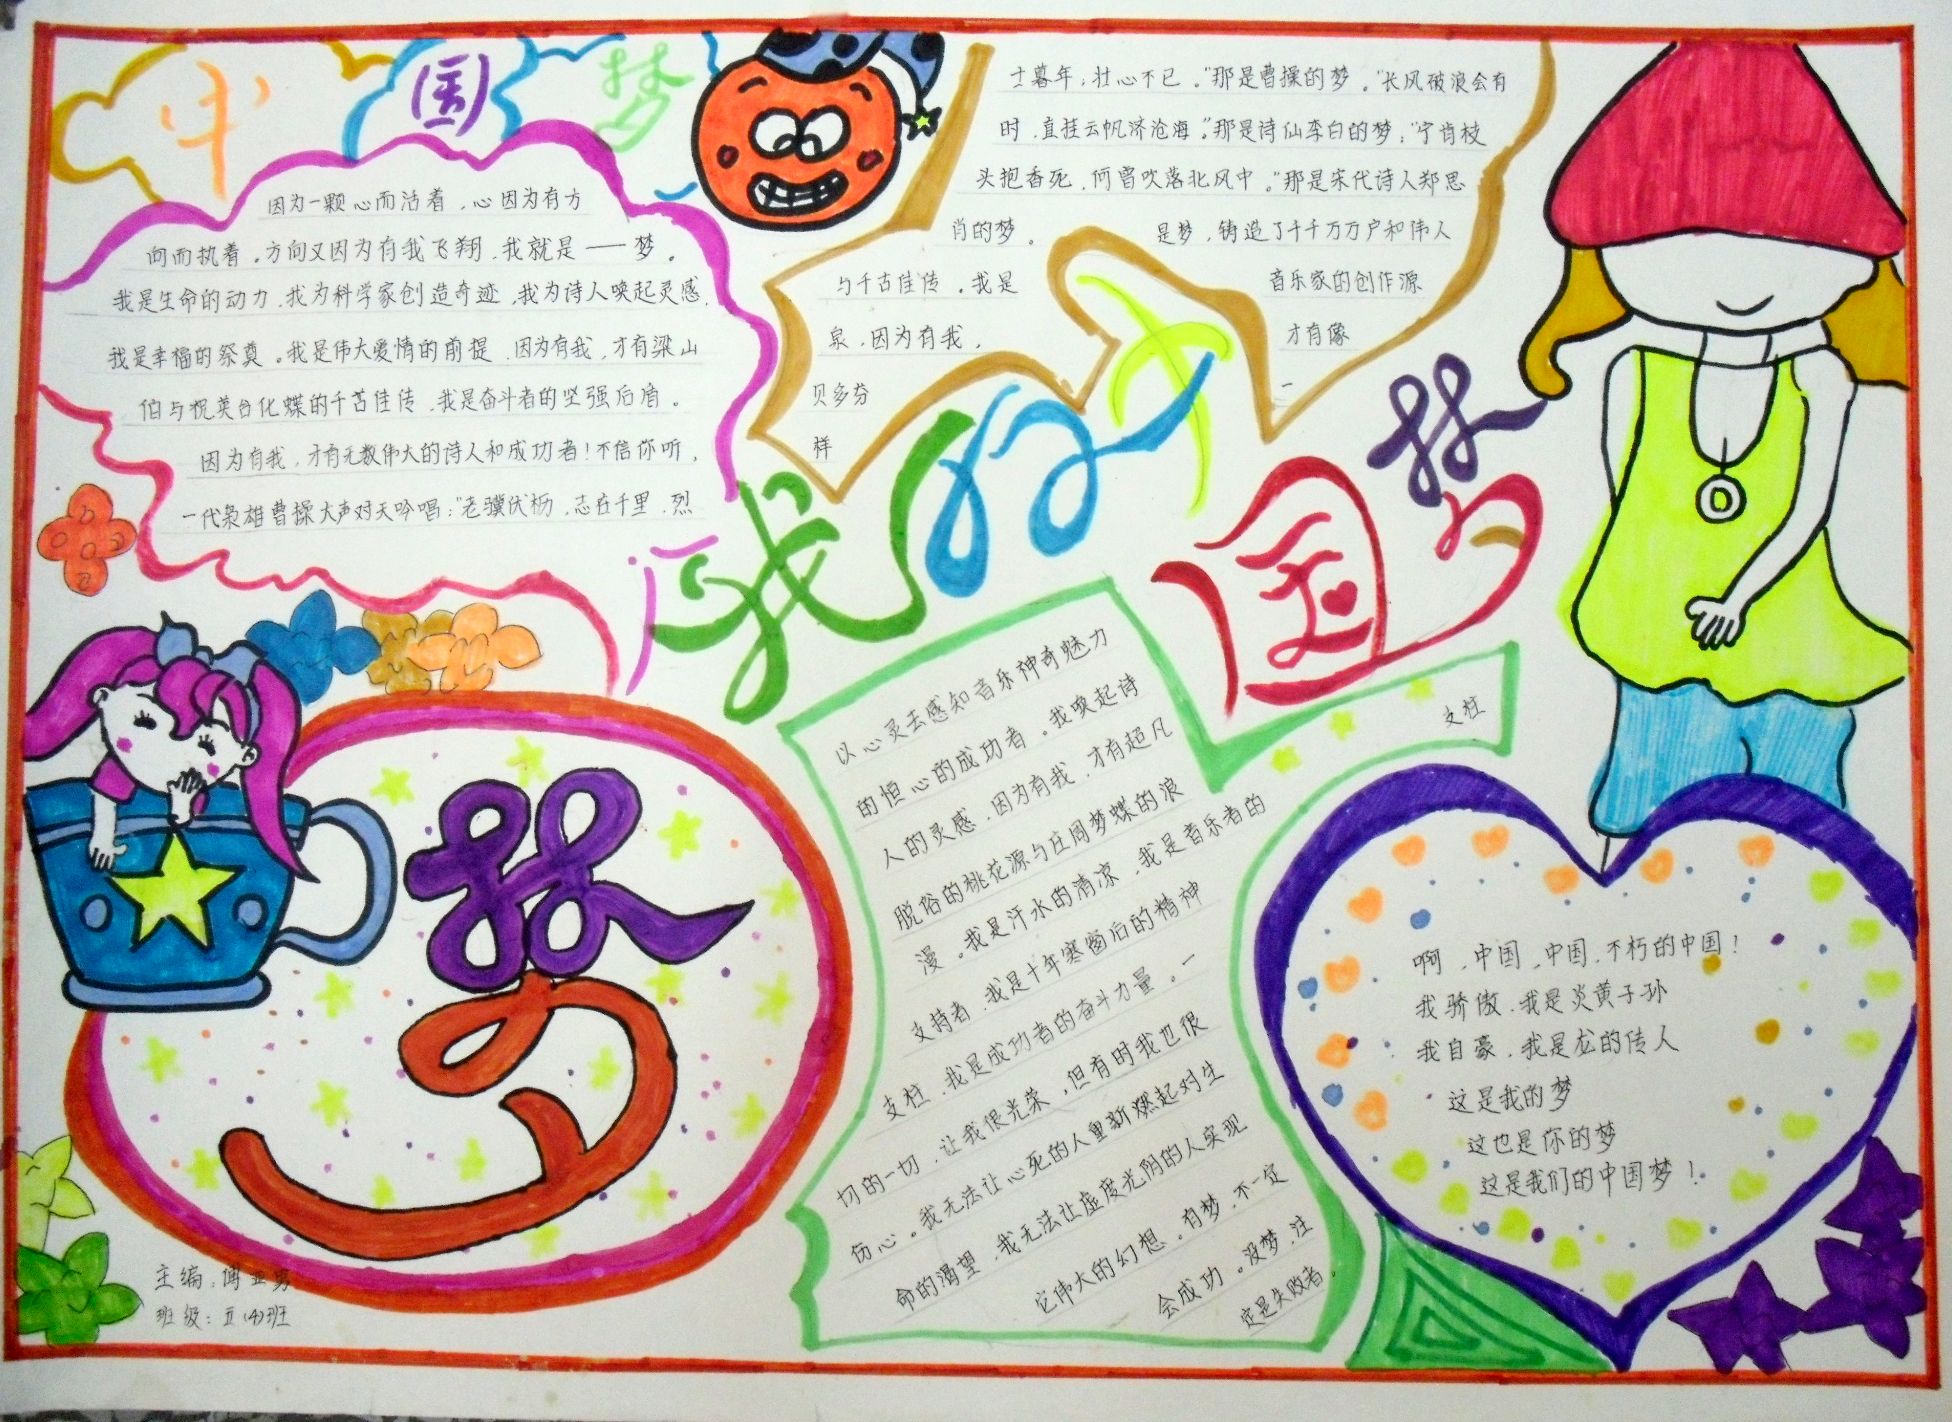 中国梦
因为一颗心而活着，心因为有方
向而执着。方向又因为有我飞翔，我就是——梦。
我是生命的动力，我为科学家创造奇迹，我为诗人唤起灵感，
我是幸福的祭奠。我是伟大爱情的前提，因为有我，才有梁山
伯与祝英台化蝶的千古佳传，我是奋斗者的坚强后盾。
因为有我，才有无数伟大的诗人和成功者！不信你听，
一代枭雄曹操大声对天吟唱：“老骥伏枥，志在千里，烈
士暮年，壮心不已。”那是曹操的梦。“长风破浪会有
时，直挂云帆济沧海。”那是诗仙李白的梦；“宁肯枝
头抱香死，何曾吹落北风中。”那是宋代诗人郑思
肖的梦。 是梦，铸造了千千万万户和伟人
与千古佳传。我是 音乐家的创作源
泉，因为有我， 才有像
贝多芬 一
样
我的中国梦
以心灵去感知音乐神奇魅力
的恒心的成功者。我唤起诗
人的灵感，因为有我，才有超凡
脱俗的桃花源与庄周梦蝶的浪
漫。我是汗水的清凉，我是音乐者的
支持者，我是十年寒窗后的精神
支柱，我是成功者的奋斗力量。一
切的一切，让我很光荣，但有时我也很
伤心。我无法让心死的人重新燃起对生
命的渴望，我无法让虚度光阴的人实现
它伟大的幻想。有梦，不一定
会成功。没梦，注
定是失败者。
支柱
梦
啊，中国，中国，不朽的中国！
我骄傲，我是炎黄子孙
我自豪，我是龙的传人
这是我的梦
这也是你的梦
这是我们的中国梦！
主编：傅亚男
班级：五(4)班